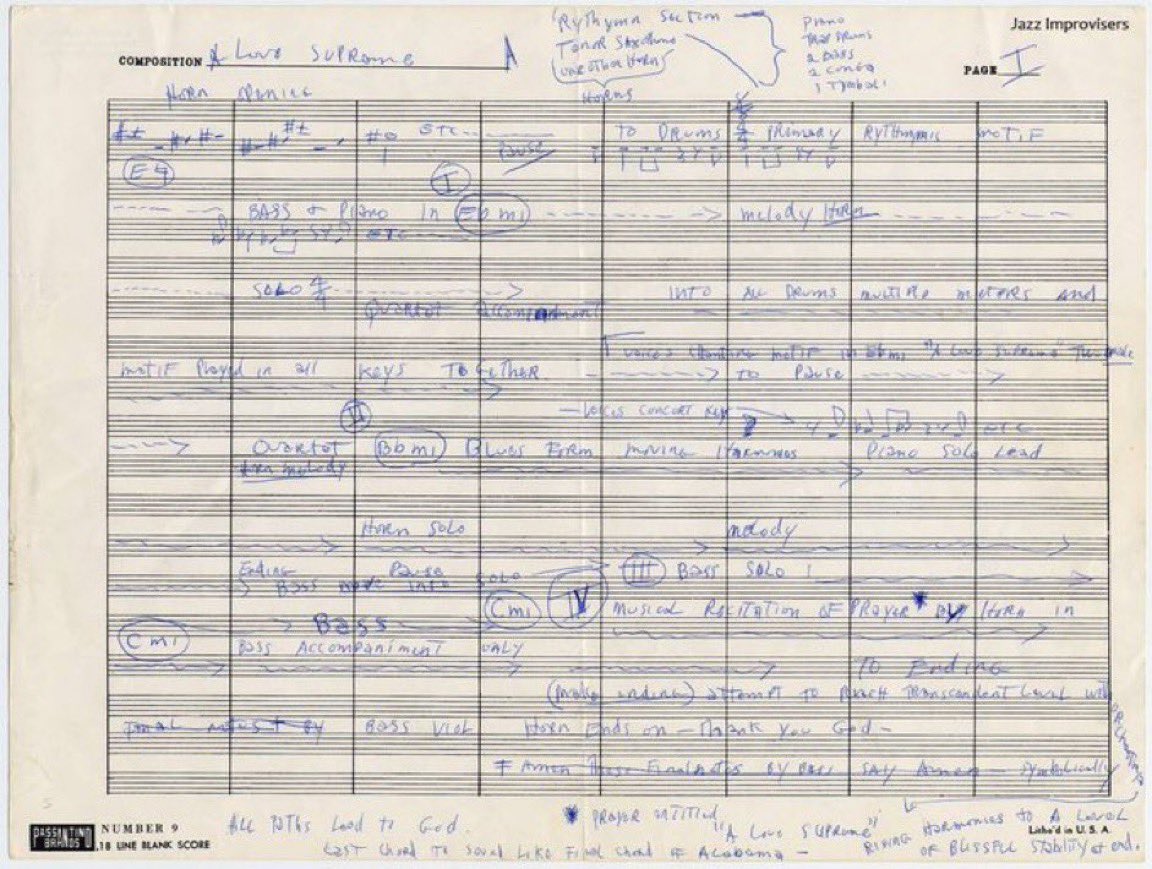 Jazz Improvisers
Rythym Section
Tenor Saxophone
one other Horn
Piano
Trap Drums
2 Bass
2 Conga
1 Tymbali
COMPOSITION A Love Supreme
PAGE I
Horn Opening
Horns
etc
Pause
To Drums Primary Rythmic motif
I
Bass & Piano in Eb mi melody Horn
etc
Solo
into all Drums multiple meters and
Quartet Accompaniment
voices chanting motif in Eb mi "A Love Supreme" Then
motif Played in all keys Together to Pause
II
Voices concert key etc
Quartet Bb mi Blues Form moving Harmonies Piano Solo Lead
Horn melody
Horn Solo melody
Ending Pause
Bass move into solo III Bass Solo 1
C mi IV Musical Recitation of Prayer by Horn in
Bass
C mi Bass Accompaniment only
To Ending
(make ending) attempt to reach transcendent Level with
final notes by Bass Viol Horn Ends on - Thank you God -
Amen These Final notes by Bass say Amen - symbolically
PASSANTINO BRANDS
NUMBER 9
18 LINE BLANK SCORE
All Paths Lead to God.
Last chord to sound like Final chord of Alabama -
* Prayer entitled
"A Love Supreme"
rising Harmonies to a Level
of Blissful Stability at end.
Litho'd in U.S.A.